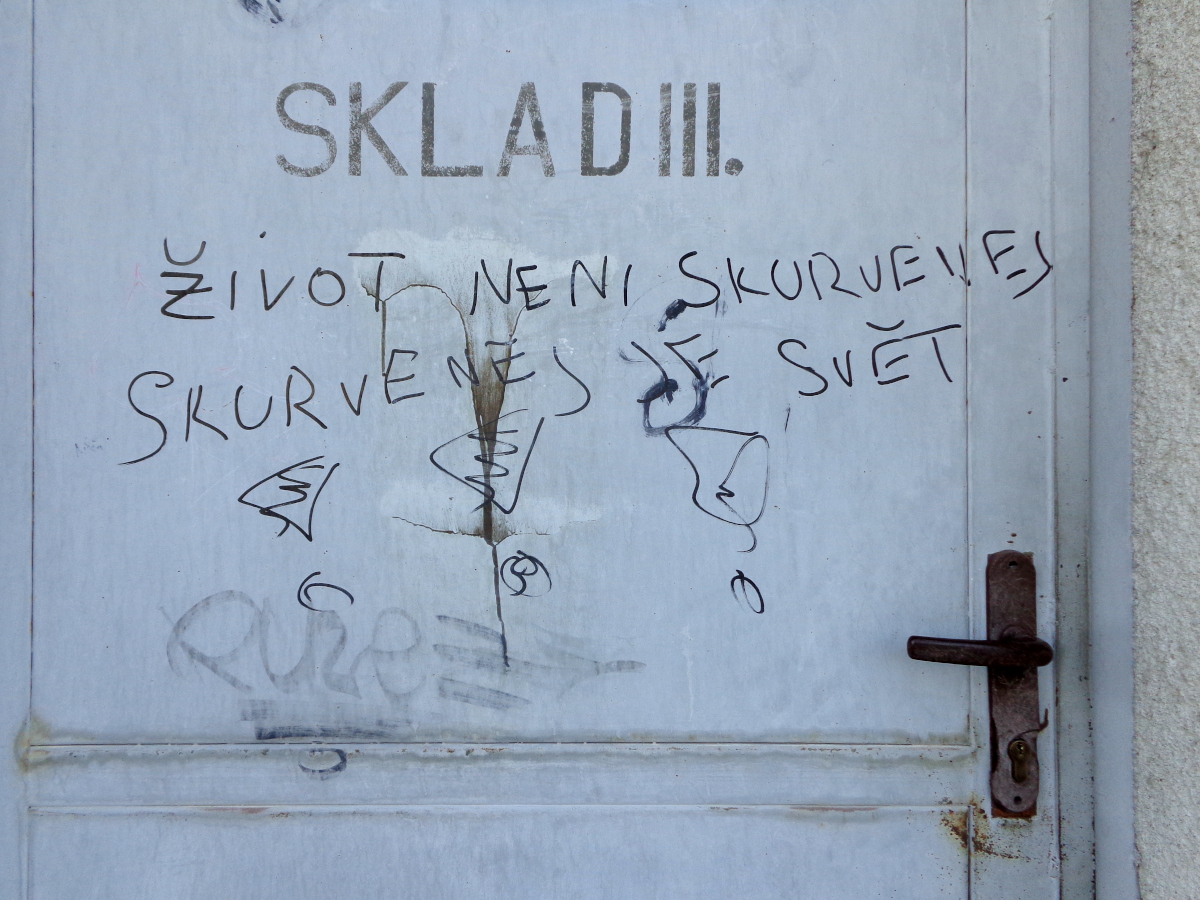 SKLAD III.
ŽIVOT NENI SKURVENEJ
SKURVENEJ JE SVĚT